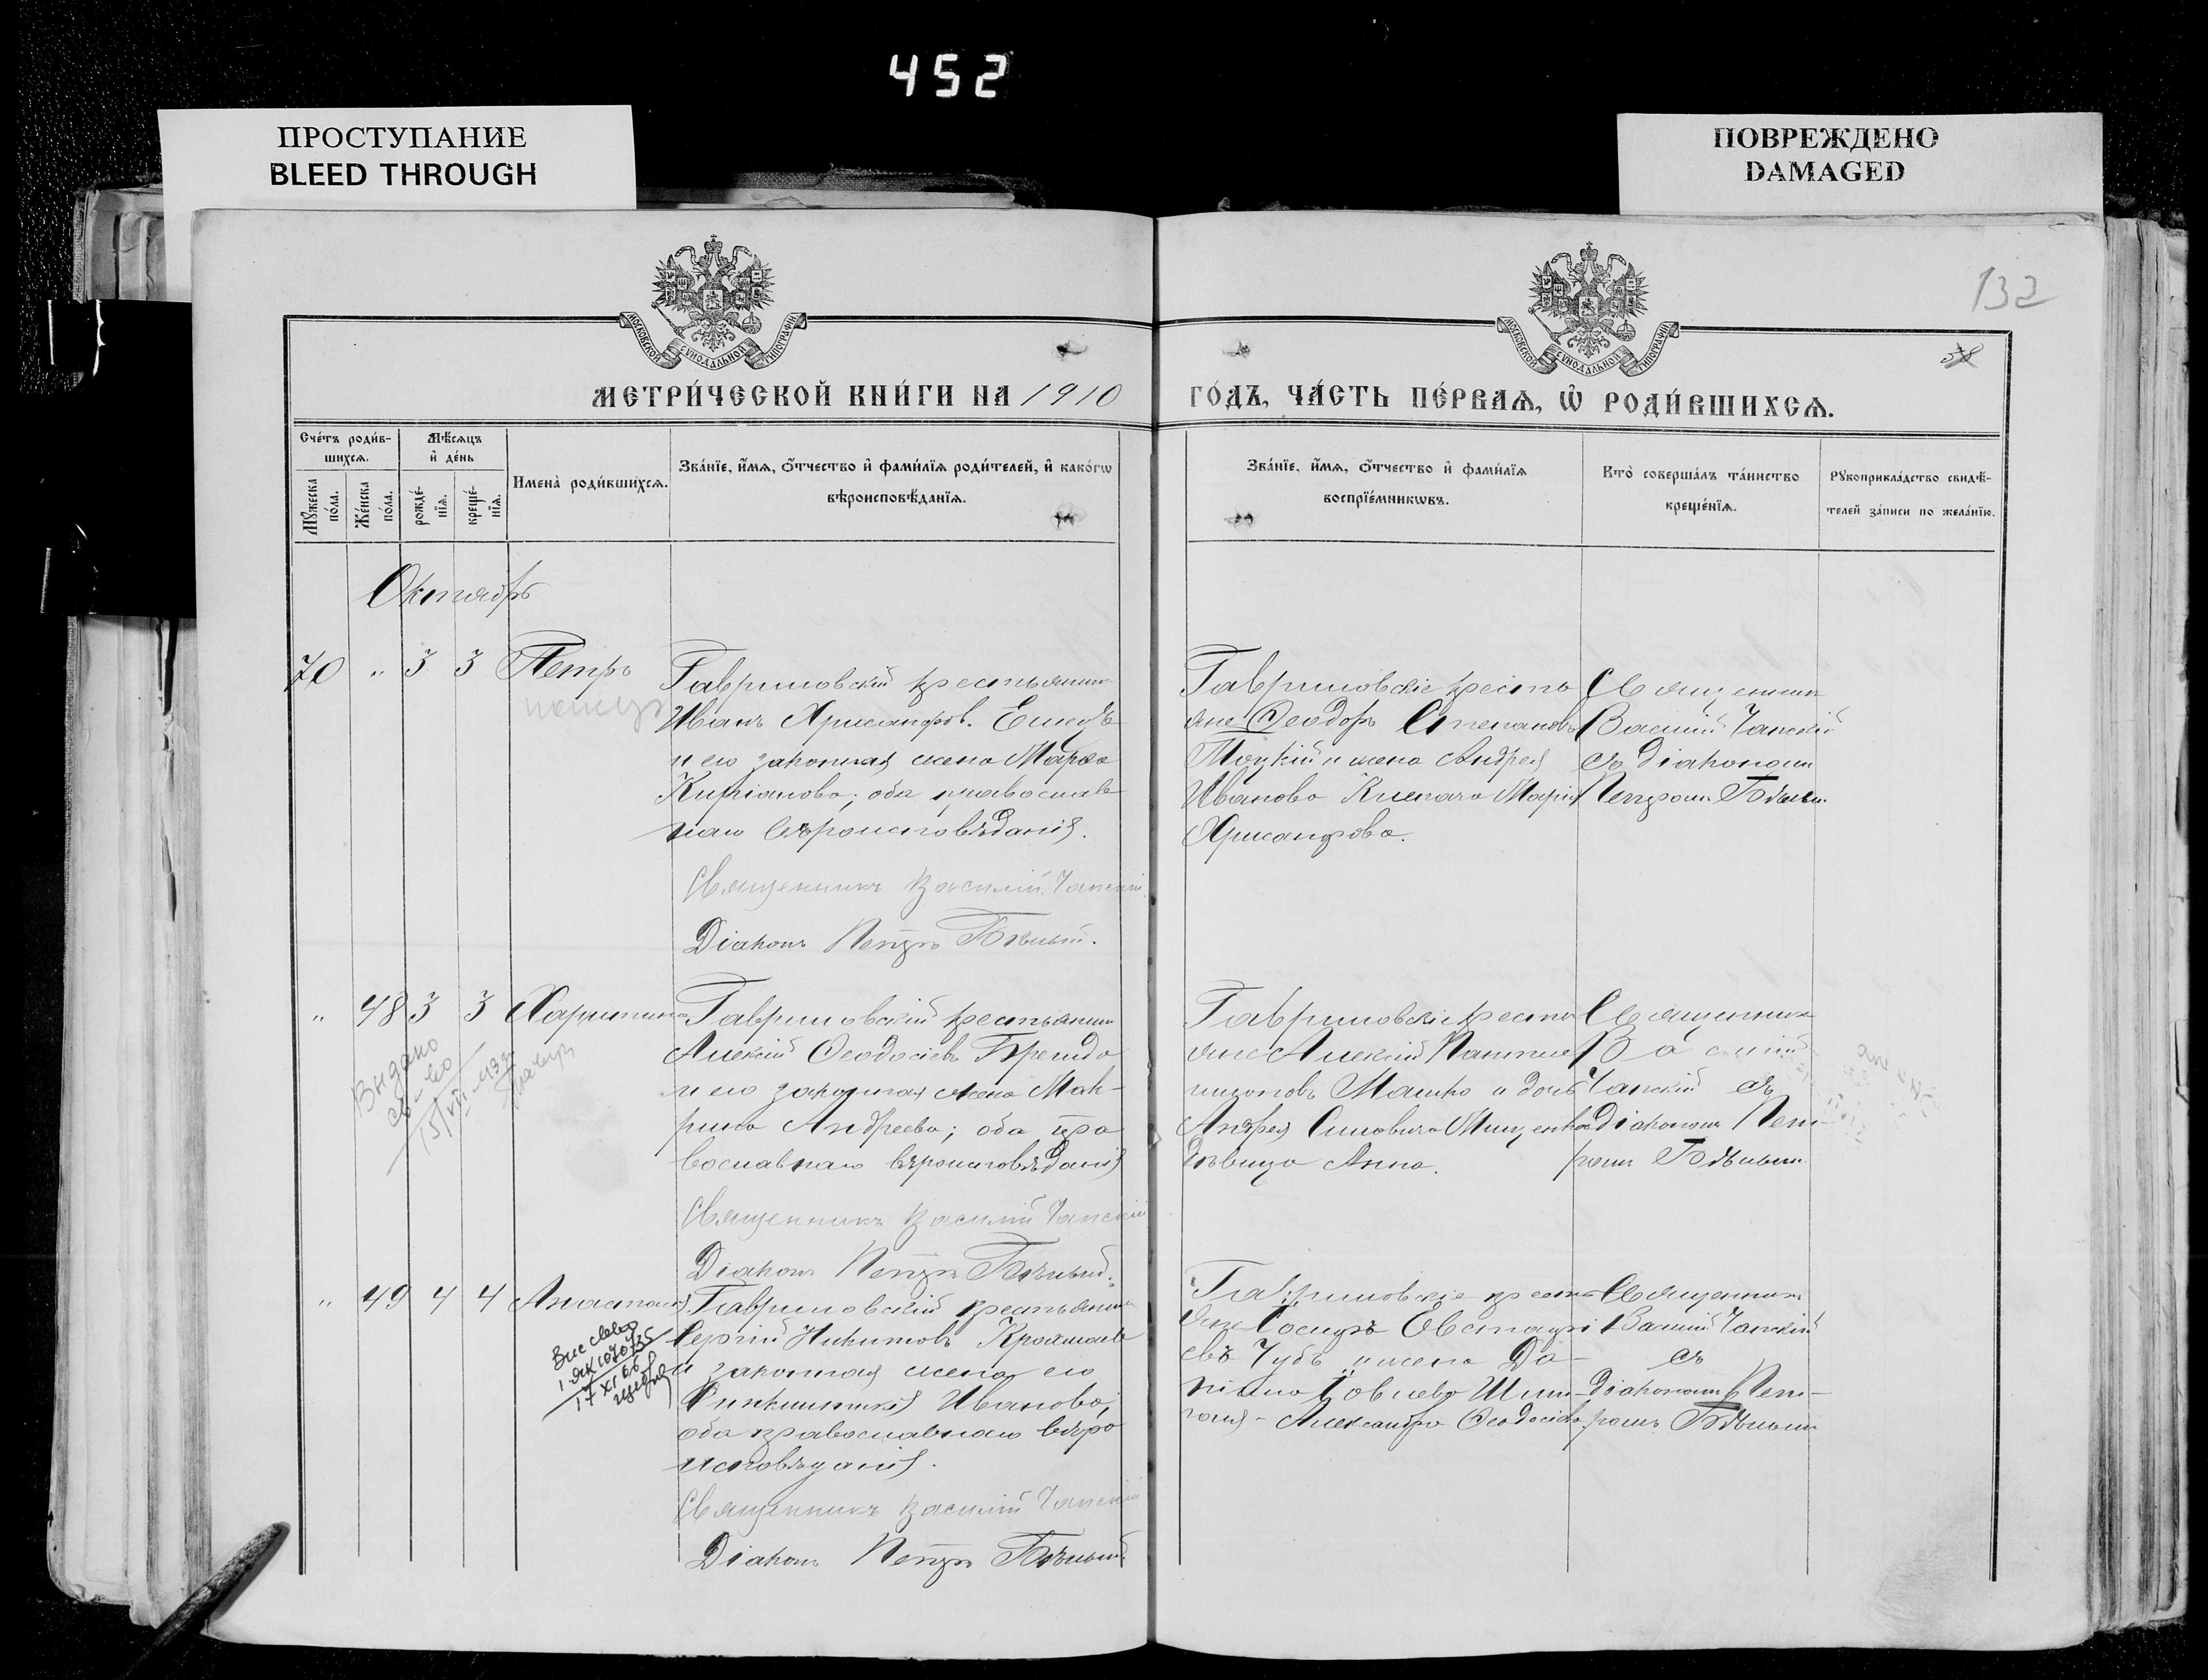 452
ПРОСТУПАНИЕ
BLEED THROUGH
ПОВРЕЖДЕНО
DAMAGED
132
МОСКОВСКОЙ СѴНОДАЛЬНОЙ ТИПОГРАФІИ
МОСКОВСКОЙ СѴНОДАЛЬНОЙ ТИПОГРАФІИ
МЕТРИ́ЧЕСКОЙ КНИ́ГИ НА 1910
ГО́ДЪ, ЧА́СТЬ ПЕ́РВАѦ, Ѡ҆ РОДИ́ВШИХСѦ.
Сче́тъ роди́в-
шихсѧ.
Мꙋ́жеска по́ла.
Же́нска по́ла.
Мѣ́сѧцъ
и҆ де́нь
рожде́-
нїѧ.
креще́-
нїѧ.
Имена̀ роди́вшихсѧ.
Зва́нїе, и҆́мѧ, ѻ҆́тчество и҆ фами́лїѧ роди́телей, и҆ како́гѡ
вѣроисповѣ́данїѧ.
Зва́нїе, и҆́мѧ, ѻ҆́тчество и҆ фами́лїѧ
воспрїе́мникѡвъ.
Кто̀ соверша́лъ та́инство
креще́нїѧ.
Рꙋкоприкла́дство свидѣ́-
телей за́писи по жела́нїю.
Октябрь
70 " 3 3 Петръ
Гавриловскій крестьянинъ
Иванъ Хрисанфовъ
и его законная жена Марѳа
Кипріанова; оба православ
наго вѣроисповѣданія.
Священникъ Василій Чапскій
Діаконъ Петръ Бѣлый.
Гавриловскіе кресть
яне Ѳеодоръ Степановъ
Моцкій и жена Андрея
Иванова Клепача Марія
Хрисанфова.
Священникъ
Василій Чапскій
съ Діакономъ
Петромъ Бѣлымъ.
" 48 3 3 Харитина
Гавриловскій крестьянинъ
Алексій Ѳеодосіевъ
и его законная жена Мак-
рина Андреева; оба пра
вославнаго вѣроисповѣданія
Священникъ Василій Чапскій
Діаконъ Петръ Бѣлый.
Выдано
св-во
Гавриловскіе кресть
яне Алексій Пантеле
имоновъ Машко и дочь
Андрея
дѣвица Анна.
Священникъ
Василій
Чапскій съ
Діакономъ Пет-
ромъ Бѣлымъ.
" 49 4 4 Анастасія
Гавриловскій крестьянинъ
Сергій Никитовъ
и законная жена его
Ивановы,
оба православнаго вѣро
исповѣданія.
Священникъ Василій Чапскій
Діаконъ Петръ Бѣлый.
Гавриловскіе кресть
яне Іосифъ Евстафі
евъ Чубъ и жена Да-
ніила Іовлева
Александра Ѳеодосіева
Священникъ
Василій Чапскій
съ
Діакономъ Пет-
ромъ Бѣлымъ